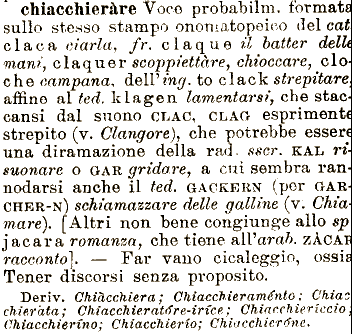 chiacchieràre Voce probabilm. formata
sullo stesso stampo onomatopeico del cat.
claca ciarla, fr. claque il batter delle
mani, claquer scoppiettàre, chioccare, clo-
che campana, dell'ing. to clack strepitare,
affino al ted. klagen lamentarsi, che stac-
cansi dal suono CLAC, CLAG esprimente
strepito (v. Clangore), che potrebbe essere
una diramazione della rad. sscr. KAL ri-
suonare o GAR gridare, a cui sembra ran-
nodarsi anche il ted. GACKERN (per GAR-
CHER-N) schiamazzare delle galline (v. Chia-
mare). [Altri non bene congiunge allo sp.
jacara romanza, che tiene all'arab. ZÀCAR
racconto]. — Far vano cicaleggio, ossia
Tener discorsi senza proposito.
Deriv. Chiàcchiera; Chiaccheraménto; Chiac-
chieràta; Chiacchieratóre-iríce; Chiacchieríccio;
Chiacchieríno; Chiacchierío; Chiacchieróne.